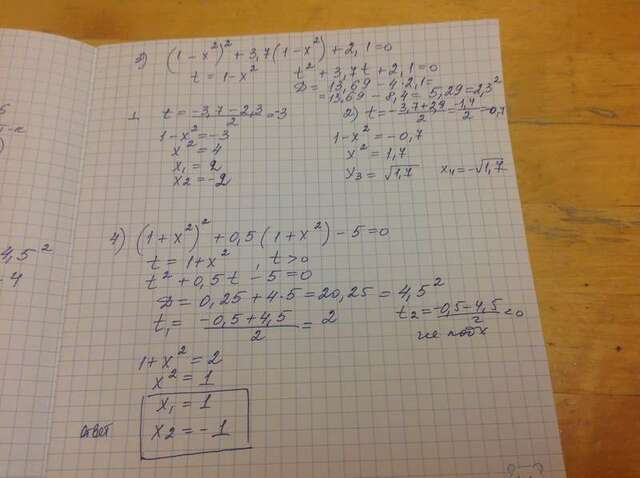 2) (1-x²)² + 3,7(1-x²) + 2,1=0
t=1-x² t²+3,7t+2,1=0
D= 13,69-4·2,1=
=13,69-8,4= 5,29=2,3²
1. t= (-3,7-2,3)/2 =-3 2) t= (-3,7+2,3)/2 = -1,4/2 =-0,7
1-x²=-3 1-x²=-0,7
x²=4 x²=1,7
x₁=2 x₃=√1,7 x₄=-√1,7
x2=-2
4) (1+x²)² + 0,5(1+x²) -5=0
t=1+x², t>0
t²+0,5t -5=0
D= 0,25+4·5=20,25= 4,5²
t₁= (-0,5+4,5)/2 = 2 t₂= (-0,5-4,5)/2 <0
не подх
1+x²=2
x²=1
x₁=1
ответ x2=-1
4,5²
-4